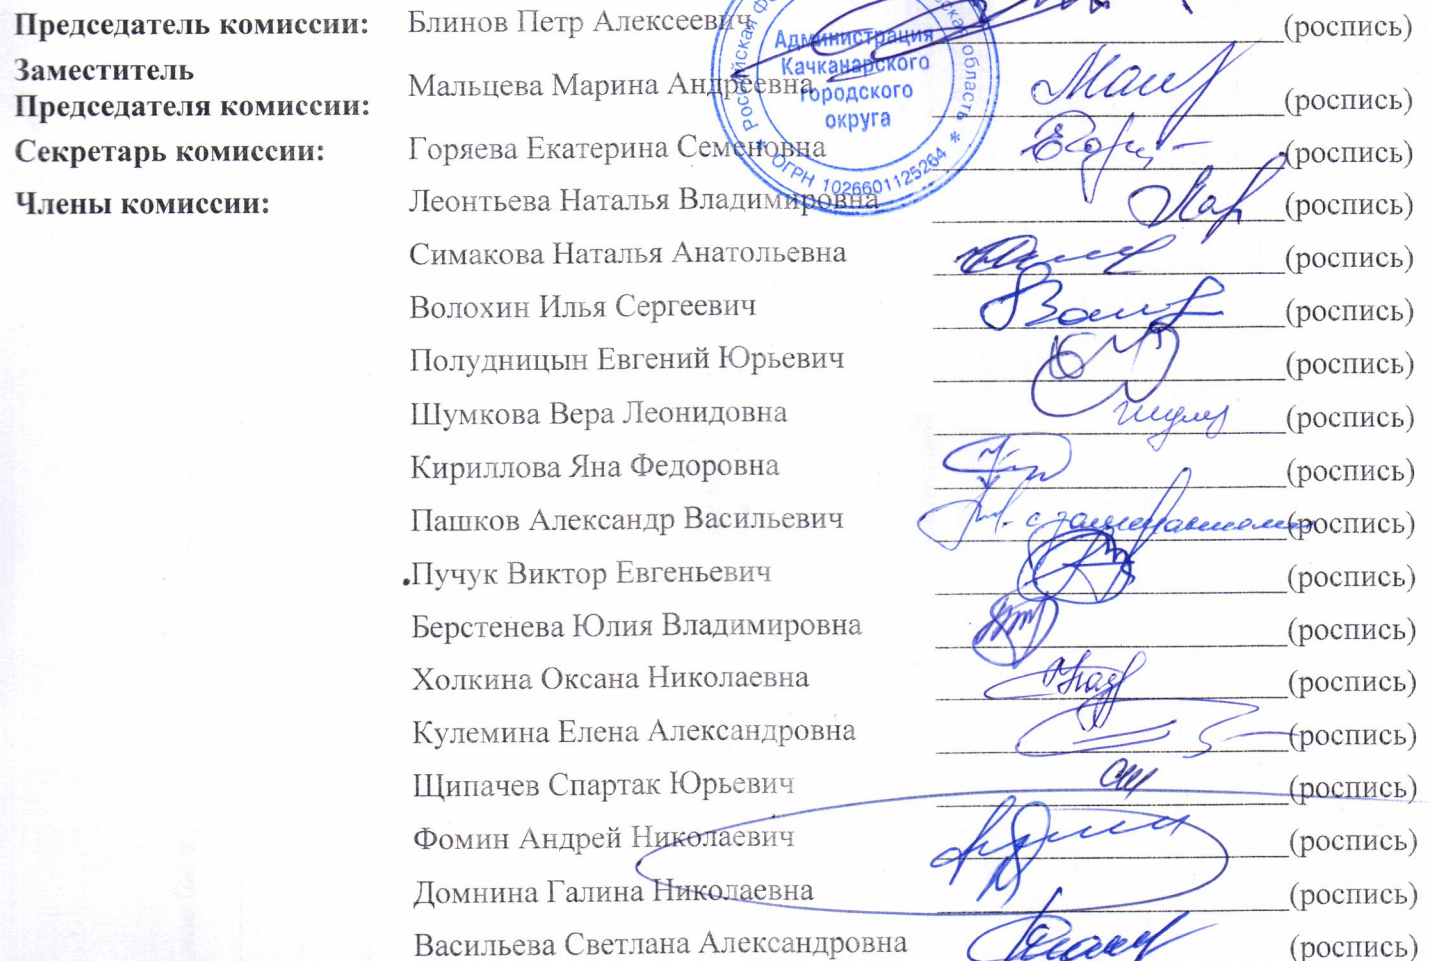 Председатель комиссии: Блинов Петр Алексеевич (роспись)
Заместитель
Председателя комиссии: Мальцева Марина Андреевна (роспись)
Секретарь комиссии: Горяева Екатерина Семеновна (роспись)
Члены комиссии: Леонтьева Наталья Владимировна (роспись)
Симакова Наталья Анатольевна (роспись)
Волохин Илья Сергеевич (роспись)
Полудницын Евгений Юрьевич (роспись)
Шумкова Вера Леонидовна (роспись)
Кириллова Яна Федоровна (роспись)
Пашков Александр Васильевич (роспись)
Пучук Виктор Евгеньевич (роспись)
Берстенева Юлия Владимировна (роспись)
Холкина Оксана Николаевна (роспись)
Кулемина Елена Александровна (роспись)
Щипачев Спартак Юрьевич (роспись)
Фомин Андрей Николаевич (роспись)
Домнина Галина Николаевна (роспись)
Васильева Светлана Александровна (роспись)
Администрация
Качканарского
городского
округа
область * ОГРН 1026601125264 *